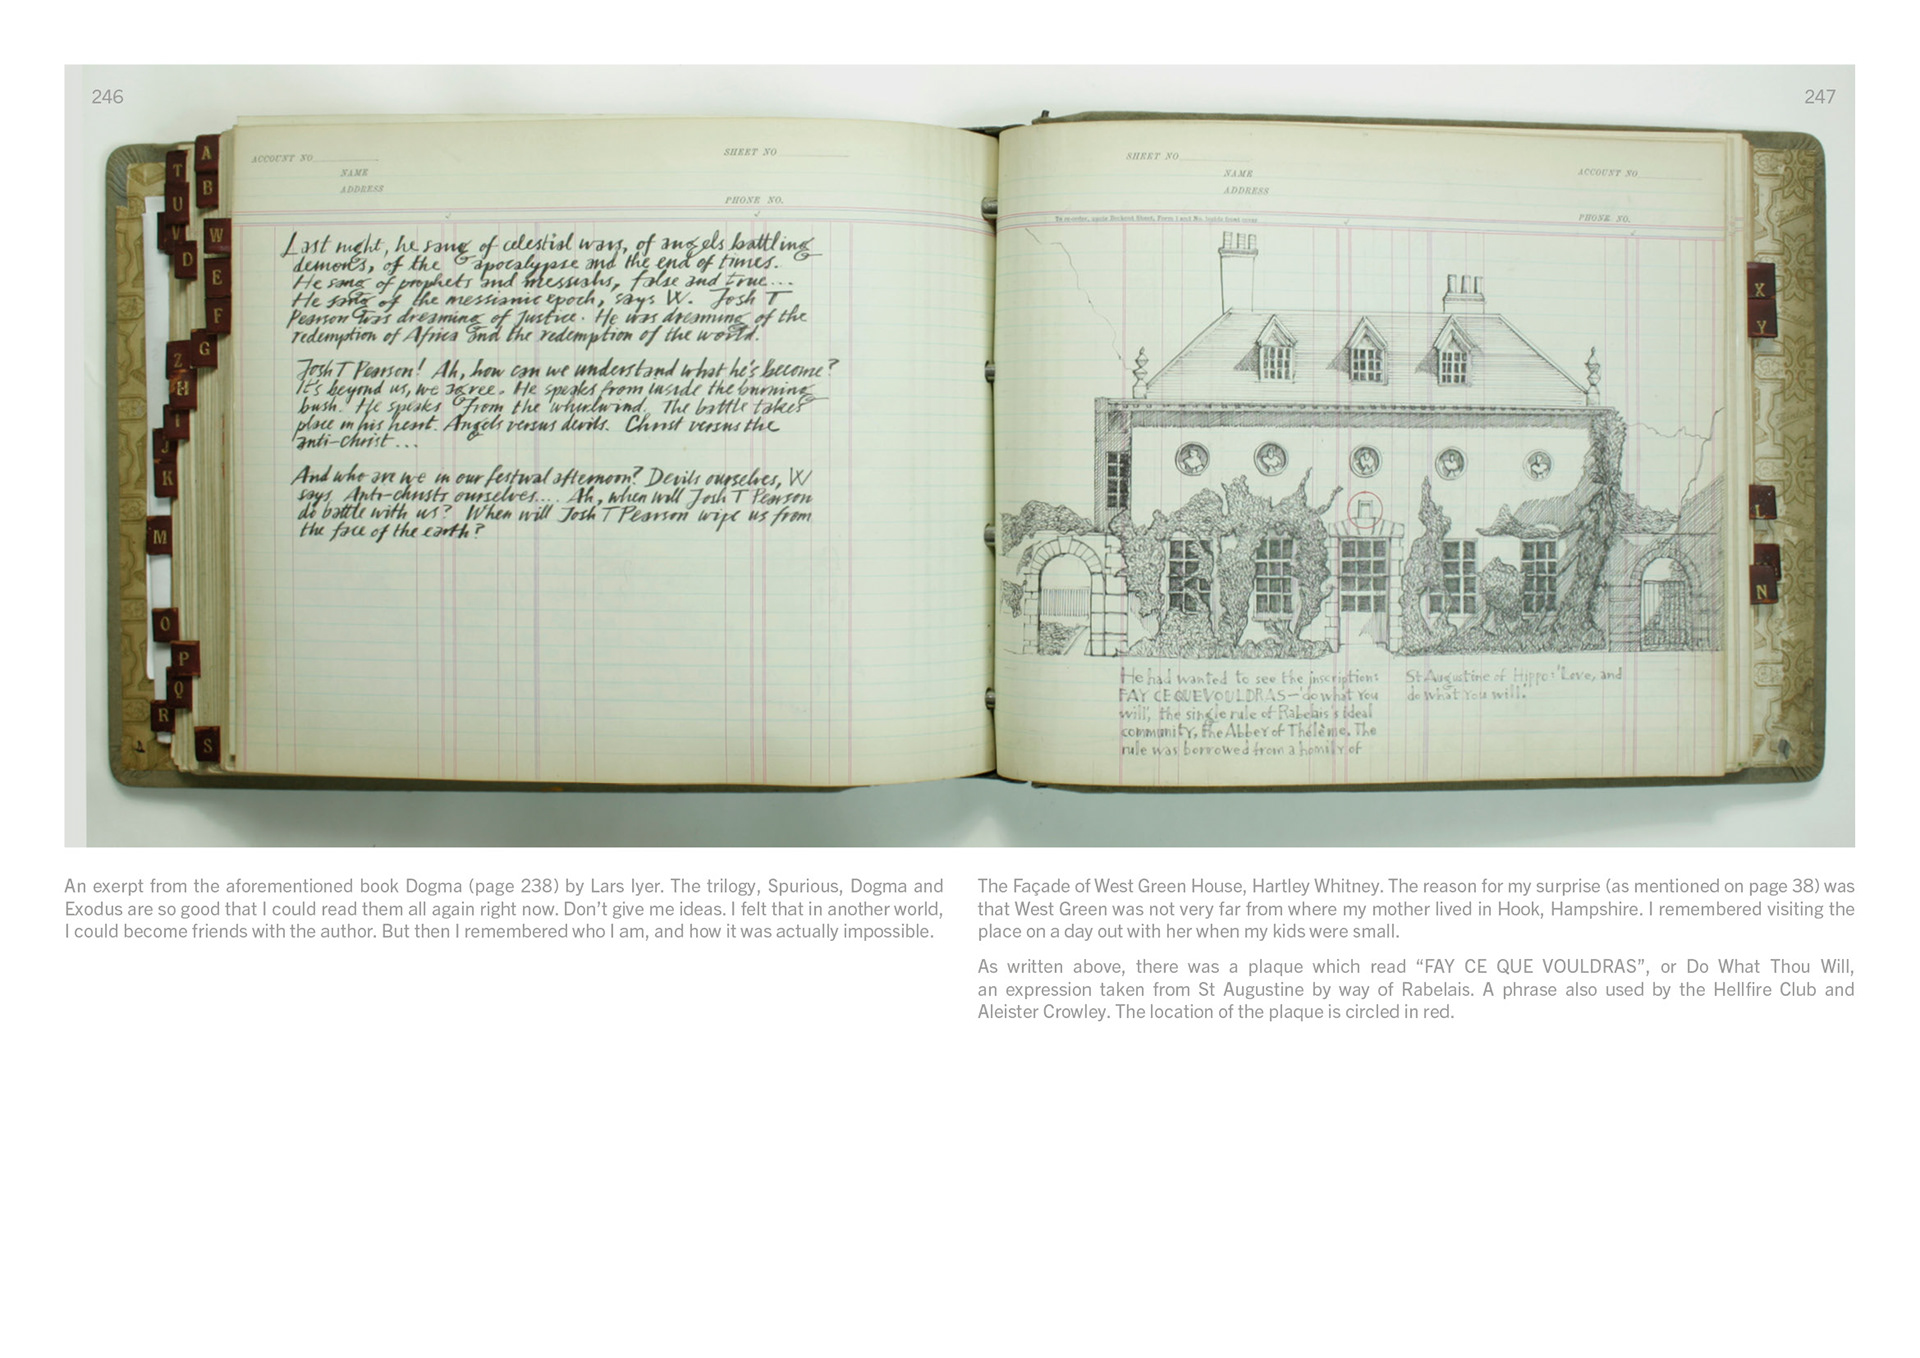 246
247
A
T
B
U
V
W
D
E
F
G
Z
H
I
J
K
M
O
P
Q
R
S
ACCOUNT NO
SHEET NO
NAME
ADDRESS
PHONE NO.
Last night, he sang of celestial wars, of angels battling
demons, of the apocalypse and the end of times.
He sang of prophets and messiahs, false and true...
He sang of the messianic epoch, says W. Josh T
Pearson was dreaming of Justice. He was dreaming of the
redemption of Africa and the redemption of the world.
Josh T Pearson! Ah, how can we understand what he's become?
It's beyond us, we agree. He speaks from inside the burning
bush. He speaks from the whirlwind. The battle takes
place in his heart. Angels versus devils. Christ versus the
anti-christ...
And who are we in our festival afternoon? Devils ourselves, W
says. Anti-christs ourselves.... Ah, when will Josh T Pearson
do battle with us? When will Josh T Pearson wipe us from
the face of the earth?
SHEET NO
ACCOUNT NO
NAME
ADDRESS
To re-order, Sheet, Form 1 and No. inside front cover
PHONE NO.
X
Y
L
N
He had wanted to see the inscription:
FAY CE QUE VOULDRAS – 'do what you
will', the single rule of Rabelais's ideal
community, the Abbey of Thélème. The
rule was borrowed from a homily of
St Augustine of Hippo: 'Love, and
do what you will.'
An exerpt from the aforementioned book Dogma (page 238) by Lars Iyer. The trilogy, Spurious, Dogma and
Exodus are so good that I could read them all again right now. Don't give me ideas. I felt that in another world,
I could become friends with the author. But then I remembered who I am, and how it was actually impossible.
The Façade of West Green House, Hartley Whitney. The reason for my surprise (as mentioned on page 38) was
that West Green was not very far from where my mother lived in Hook, Hampshire. I remembered visiting the
place on a day out with her when my kids were small.
As written above, there was a plaque which read “FAY CE QUE VOULDRAS”, or Do What Thou Will,
an expression taken from St Augustine by way of Rabelais. A phrase also used by the Hellfire Club and
Aleister Crowley. The location of the plaque is circled in red.